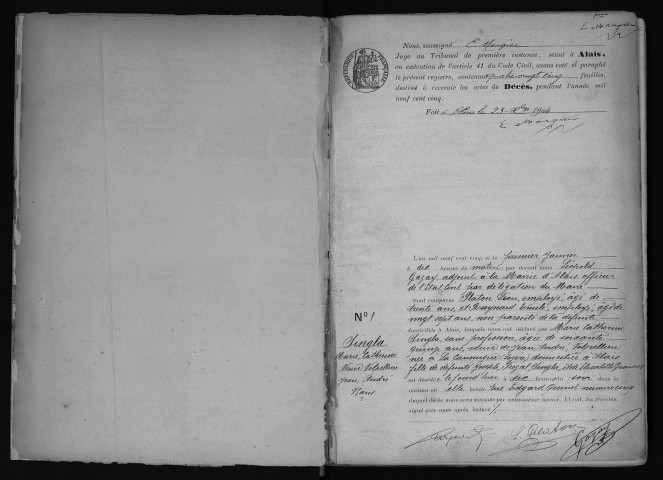 Nous, soussigné E. Margier
Juge au Tribunal de première instance, séant à Alais,
en exécution de l'article 41 du Code Civil, avons coté et paraphé
le présent registre, contenant quatre vingt cinq feuilles,
destiné à recevoir les actes de Décès, pendant l'année mil
neuf cent cinq.
Fait à Alais le 23 Xbre 1904
E. Margier
L'an mil neuf cent cinq, et le premier janvier
à dix heures du matin, par devant nous Léopold
adjoint à la Mairie d'Alais, officier
de l'Etat Civil par délégation du Maire
Sont comparus Platon Léon, employé, âgé de
trente ans, et Raynard Emile, employé, âgé de
vingt sept ans, non parents de la défunte
domiciliés à Alais, lesquels nous ont déclaré que Marie Catherine
Singla, sans profession, âgée de soixante
quinze ans, veuve de Jean André
née à La Canourgue (Lozère) domiciliée à Alais
fille de défunts Joseph Singla, et de
est décédée le jour d'hier à dix heures du soir dans la
maison où elle habite rue Edgard Quinet numéro cinq
duquel décès nous nous sommes assuré. Et ont, les témoins,
signé avec nous après lecture
N° 1
Singla
Marie Catherine
Veuve
Jean André
L. Platon